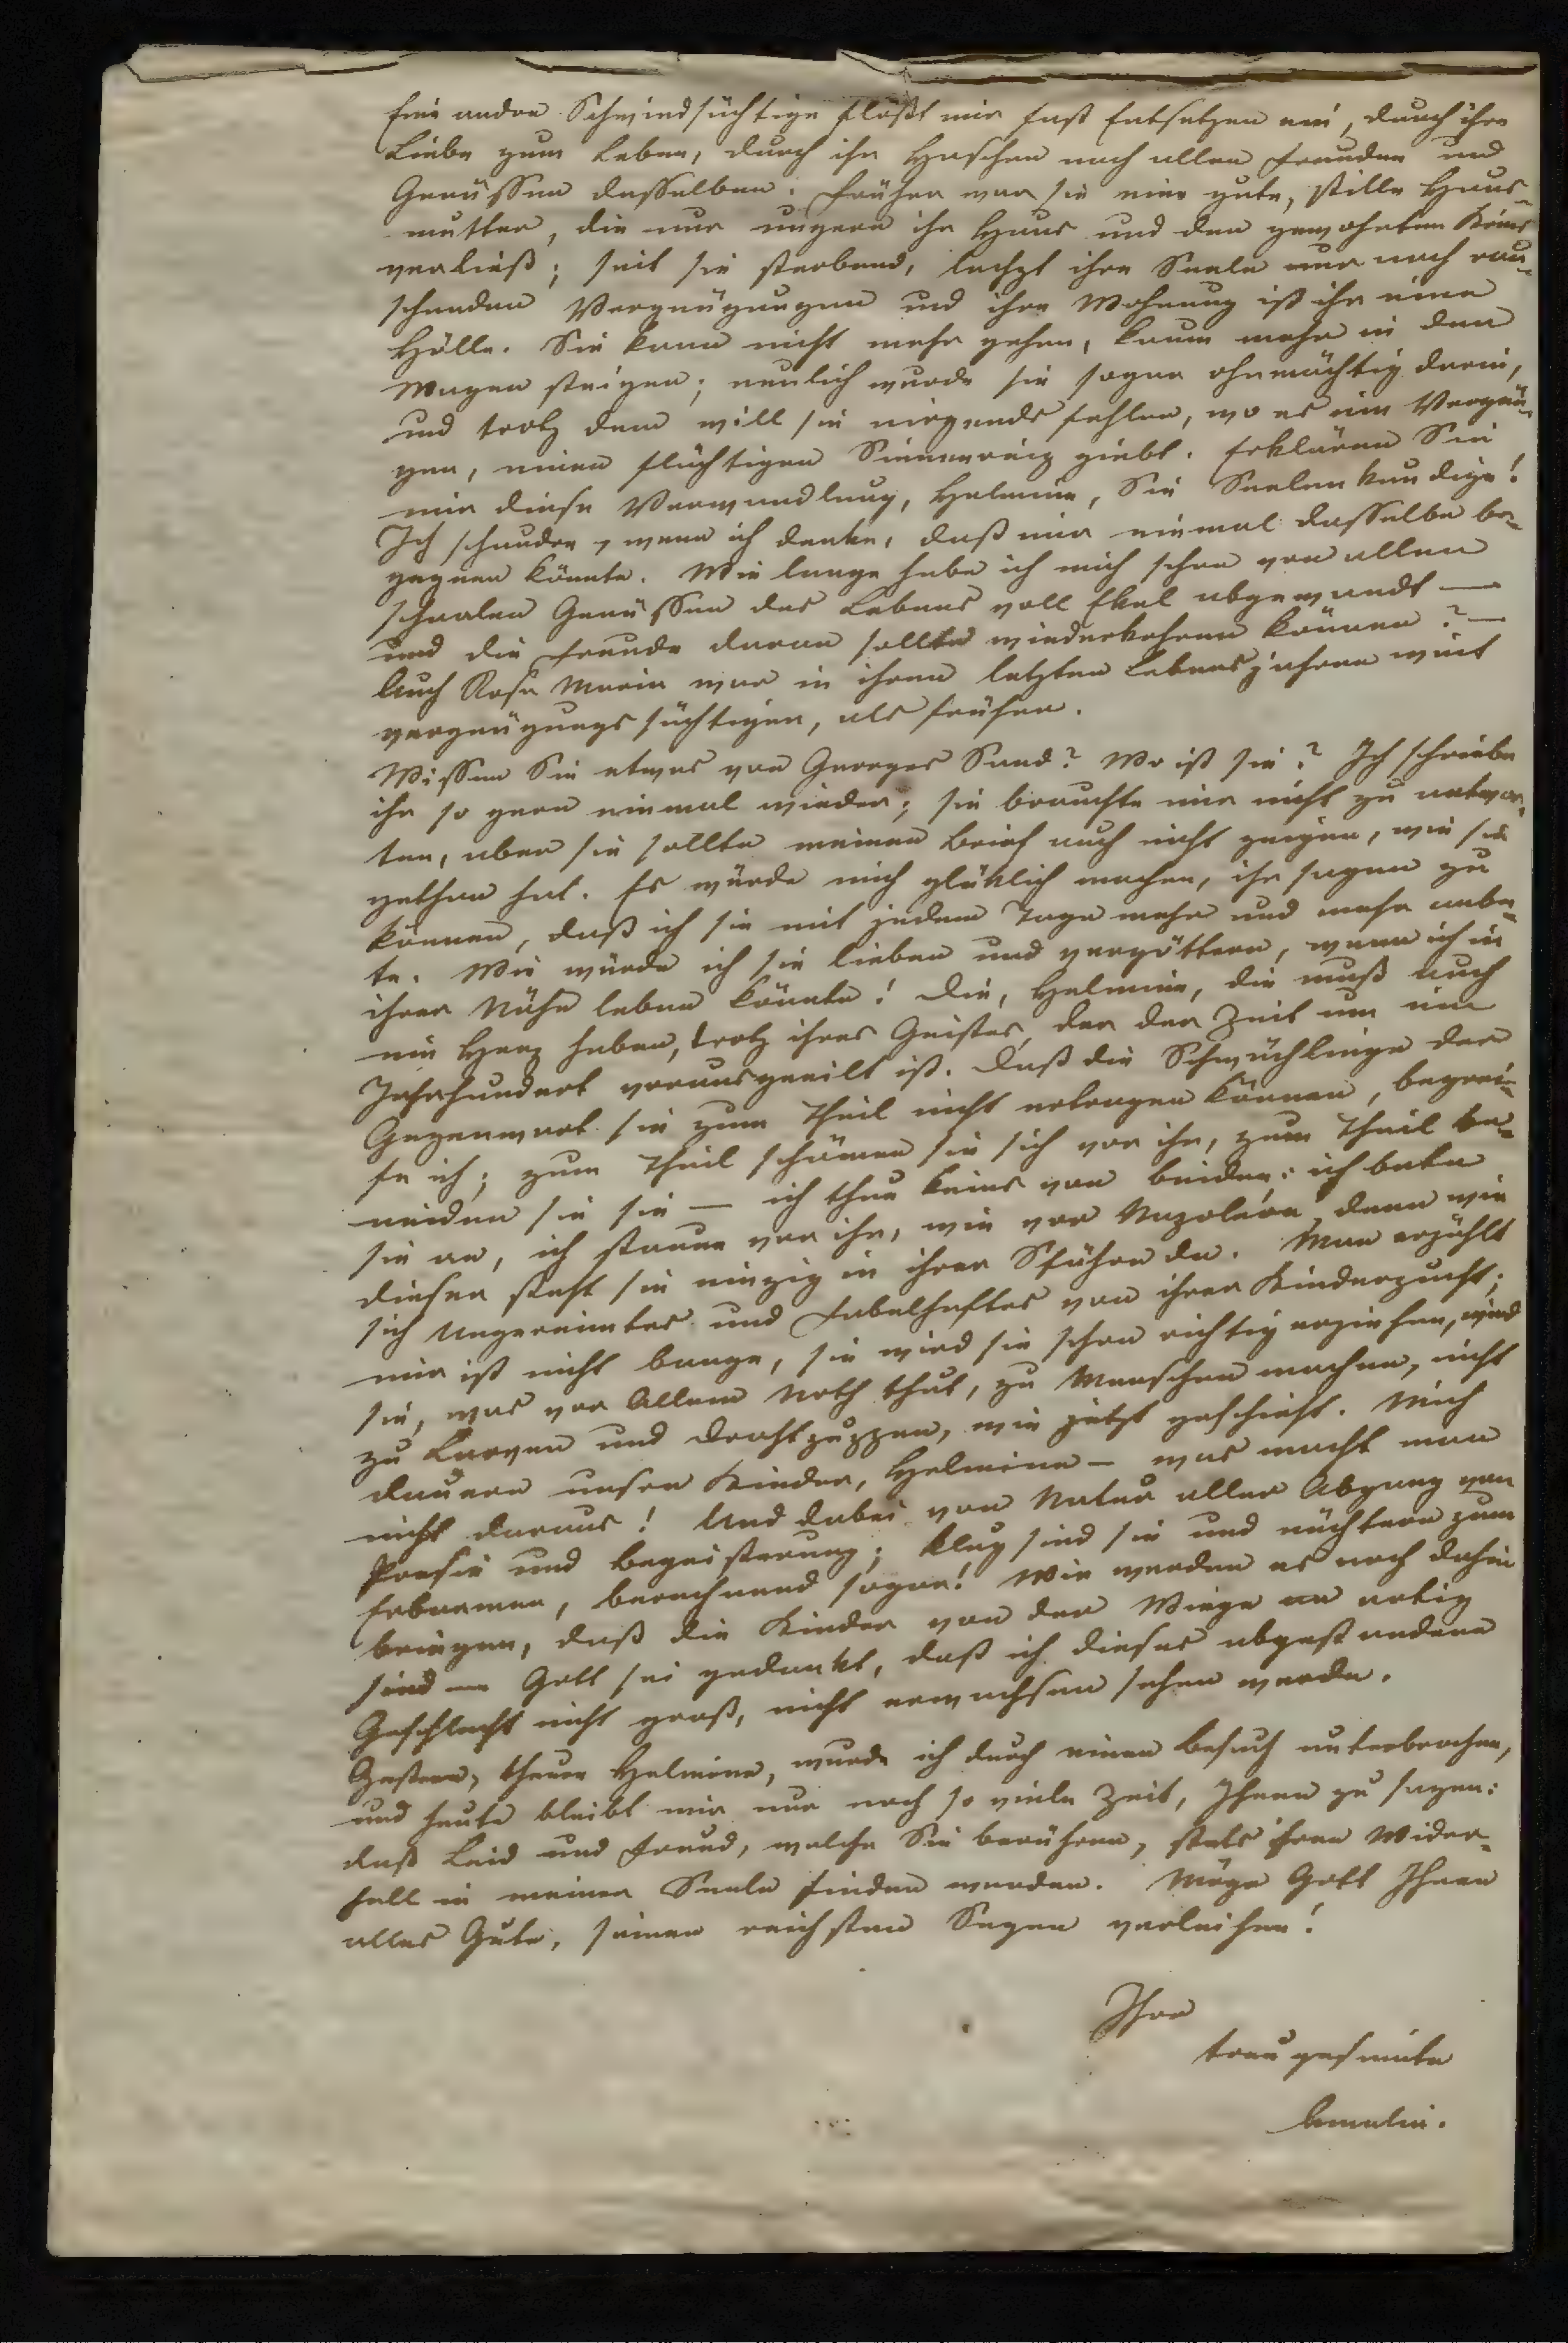 Eine andre Schwindsüchtige flößt mir fast Entsetzen ein, durch ihre
Liebe zum Leben, durch ihr Haschen nach allen Freuden und
Genüssen desselben. Früher war sie eine gute, stille Haus-
mutter, die nur ungern ihr Haus und den gewohnten Kreis
verließ; seit sie sterbend, lechzt ihre Seele nur nach rau-
schenden Vergnügungen und ihre Wohnung ist ihr eine
Hölle. Sie kann nicht mehr gehen, kaum mehr in den
Wagen steigen; neulich wurde sie sogar ohnmächtig darin,
und trotz dem will sie nirgends fehlen, wo es ein Vergnü-
gen, einen flüchtigen Sinnenreiz giebt. Erklären Sie
mir diese Verwandlung, Helmine, Sie Seelenkundige!
Ich schaudre, wenn ich denke, daß mir einmal dasselbe be-
gegnen könnte. Wie lange habe ich mich schon von allen
schaalen Genüssen des Lebens voll Ekel abgewandt —
und die Freude daran sollte wiederkehren können? —
Auch Rosa Maria war in ihren letzten Lebensjahren weit
vergnügungssüchtiger, als früher.
Wissen Sie etwas von Georges Sand? Wo ist sie? Ich schriebe
ihr so gern einmal wieder; sie brauchte mir nicht zu antwor-
ten, aber sie sollte meinen Brief auch nicht zeigen, wie sie
gethan hat. Es würde mich glüklich machen, ihr sagen zu
können, daß ich sie mit jedem Tage mehr und mehr anbe-
te. Wie würde ich sie lieben und vergöttern, wenn ich in
ihrer Nähe leben könnte! Die, Helmine, die muß auch
ein Herz haben, trotz ihres Geistes, der der Zeit um ein
Jahrhundert vorausgeeilt ist. Daß die Schwächlinge der
Gegenwart sie zum Theil nicht ertragen können, begrei-
fe ich; zum Theil schämen sie sich vor ihr, zum Theil be-
neiden sie sie — ich thue keins von beiden: ich bete
sie an, ich staune vor ihr, wie vor Napoleon, denn wie
dieser steht sie einzig in ihrer Sphäre da. Man erzählt
sich Ungereimtes und Fabelhaftes von ihrer Kinderzucht;
mir ist nicht bange, sie wird sie schon richtig erziehen, wird
sie, was vor Allem Noth thut, zu Menschen machen, nicht
zu Larven und Drahtpuppen, wie jetzt geschieht. Mich
dauern unsre Kinder, Helmine — was macht man
nicht daraus! Und dabei von Natur aller Abgang von
Poesie und Begeisterung; klug sind sie und nüchtern zum
Erbarmen, berechnend sogar! Wir werden es noch dahin
bringen, daß die Kinder von der Wiege an artig
sind — Gott sei gedankt, daß ich dieses abgestandene
Geschlecht nicht groß, nicht erwachsen sehen werde.
Gestern, theure Helmine, wurde ich durch einen Besuch unterbrochen,
und heute bleibt mir nur noch so viele Zeit, Ihnen zu sagen:
daß Leid und Freud, welche Sie berühren, stets ihren Wider-
hall in meiner Seele finden werden. Möge Gott Ihnen
alles Gute, seinen reichsten Segen verleihen!
Ihre
treu gesinnte
Amalie.